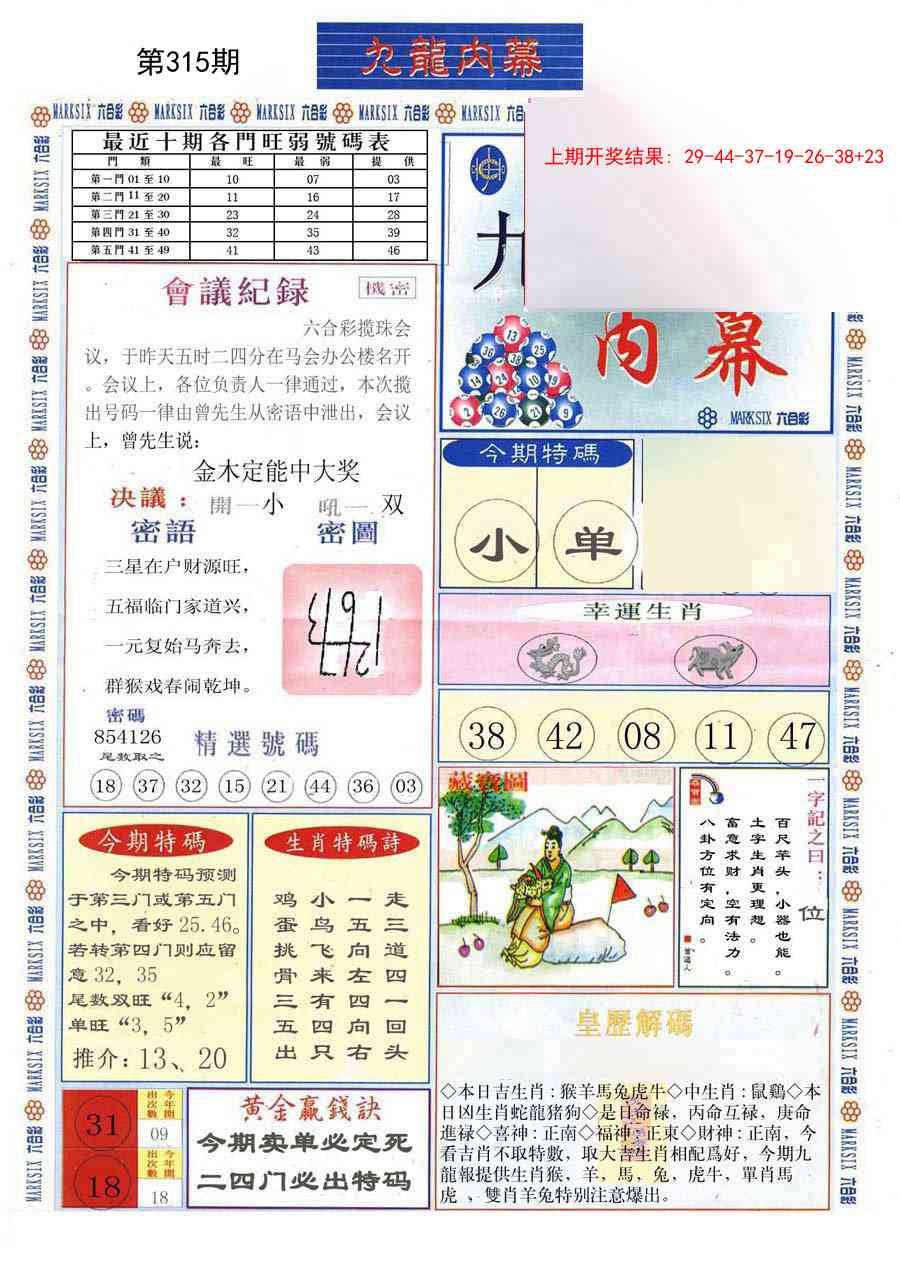 第315期
九龍内幕
MARKSIX 六合彩 MARKSIX 六合彩 MARKSIX 六合彩 MARKSIX 六合彩 MARKSIX 六
上期开奖结果：29-44-37-19-26-38+23
最近十期各門旺弱號碼表
門 類 最 旺 最 弱 提 供
第一門 01 至 10 10 07 03
第二門 11 至 20 11 16 17
第三門 21 至 30 23 24 28
第四門 31 至 40 32 35 39
第五門 41 至 49 41 43 46
九
内幕
13
36 38 25
14 24 10 19
2 26 21 9
MARKSIX 六合彩
會議紀录
機密
六合彩搅珠会
议，于昨天五时二四分在马会办公楼名开
。会议上，各位负责人一律通过，本次搅
出号码一律由曾先生从密语中泄出，会议
上，曾先生说：
金木定能中大奖
决議：開一小 吼一 双
密語
三星在户财源旺，
五福临门家道兴，
一元复始马奔去，
群猴戏春闹乾坤。
密圖
密碼
854126
尾数取之
精選號碼
18 37 32 15 21 44 36 03
今期特碼
小 单
幸運生肖
38 42 08 11 47
今期特碼
今期特码预测
于第三门或第五门
之中，看好 25.46。
若转第四门则应留
意 32，35
尾数双旺“4，2”
单旺“3，5”
推介：13、20
生肖特碼詩
鸡 小 一 走
蛋 鸟 五 三
挑 飞 向 道
骨 来 左 四
三 有 四 一
五 四 向 回
出 只 右 头
藏寶圖
一字記之曰：
位
百尺竿头，小器也能。
土字生肖更理想。
富意求财，空有法力。
八卦方位有定向。
曾道人
31
今年開
出次數
09
18
今年開
出次數
18
黄金贏錢訣
今期卖单必定死
二四门必出特码
皇歷解碼
◇本日吉生肖：猴羊馬兔虎牛◇中生肖：鼠鷄◇本
日凶生肖蛇龍猪狗◇是日命禄，丙命互禄，庚命
進禄◇喜神：正南◇福神：正東◇財神：正南，今
看吉肖不取特數，取大吉生肖相配爲好，今期九
龍報提供生肖猴，羊，馬，兔，虎牛，單肖馬
虎 、雙肖羊兔特别注意爆出。